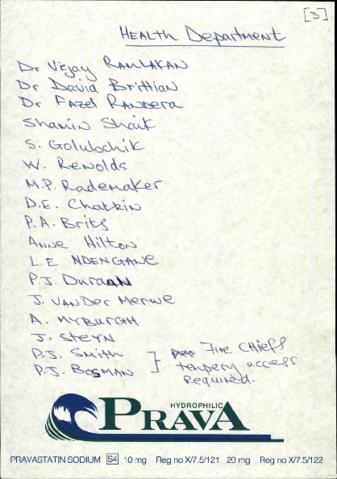 [3]
HEALTH Department
Dr Vejay RAMLAKAN
Dr David Brittlan
Dr Fazel Randera
Shamin Shaik
S. Golubchik
W. Renolds
M.P. Rademaker
D.E. Chatkin
P.A. Brits
Anne Hilton
L.E NDENGANE
P.J. Duraan
J. VAN Der Merwe
A. MYBURGH
J. STEYN
P.J. Smith } Fire Chiefs
P.J. Bosman } tempery access
Required.
HYDROPHILIC
PRAVA
PRAVASTATIN SODIUM S4 10 mg Reg no X/7.5/121 20 mg Reg no X/7.5/122